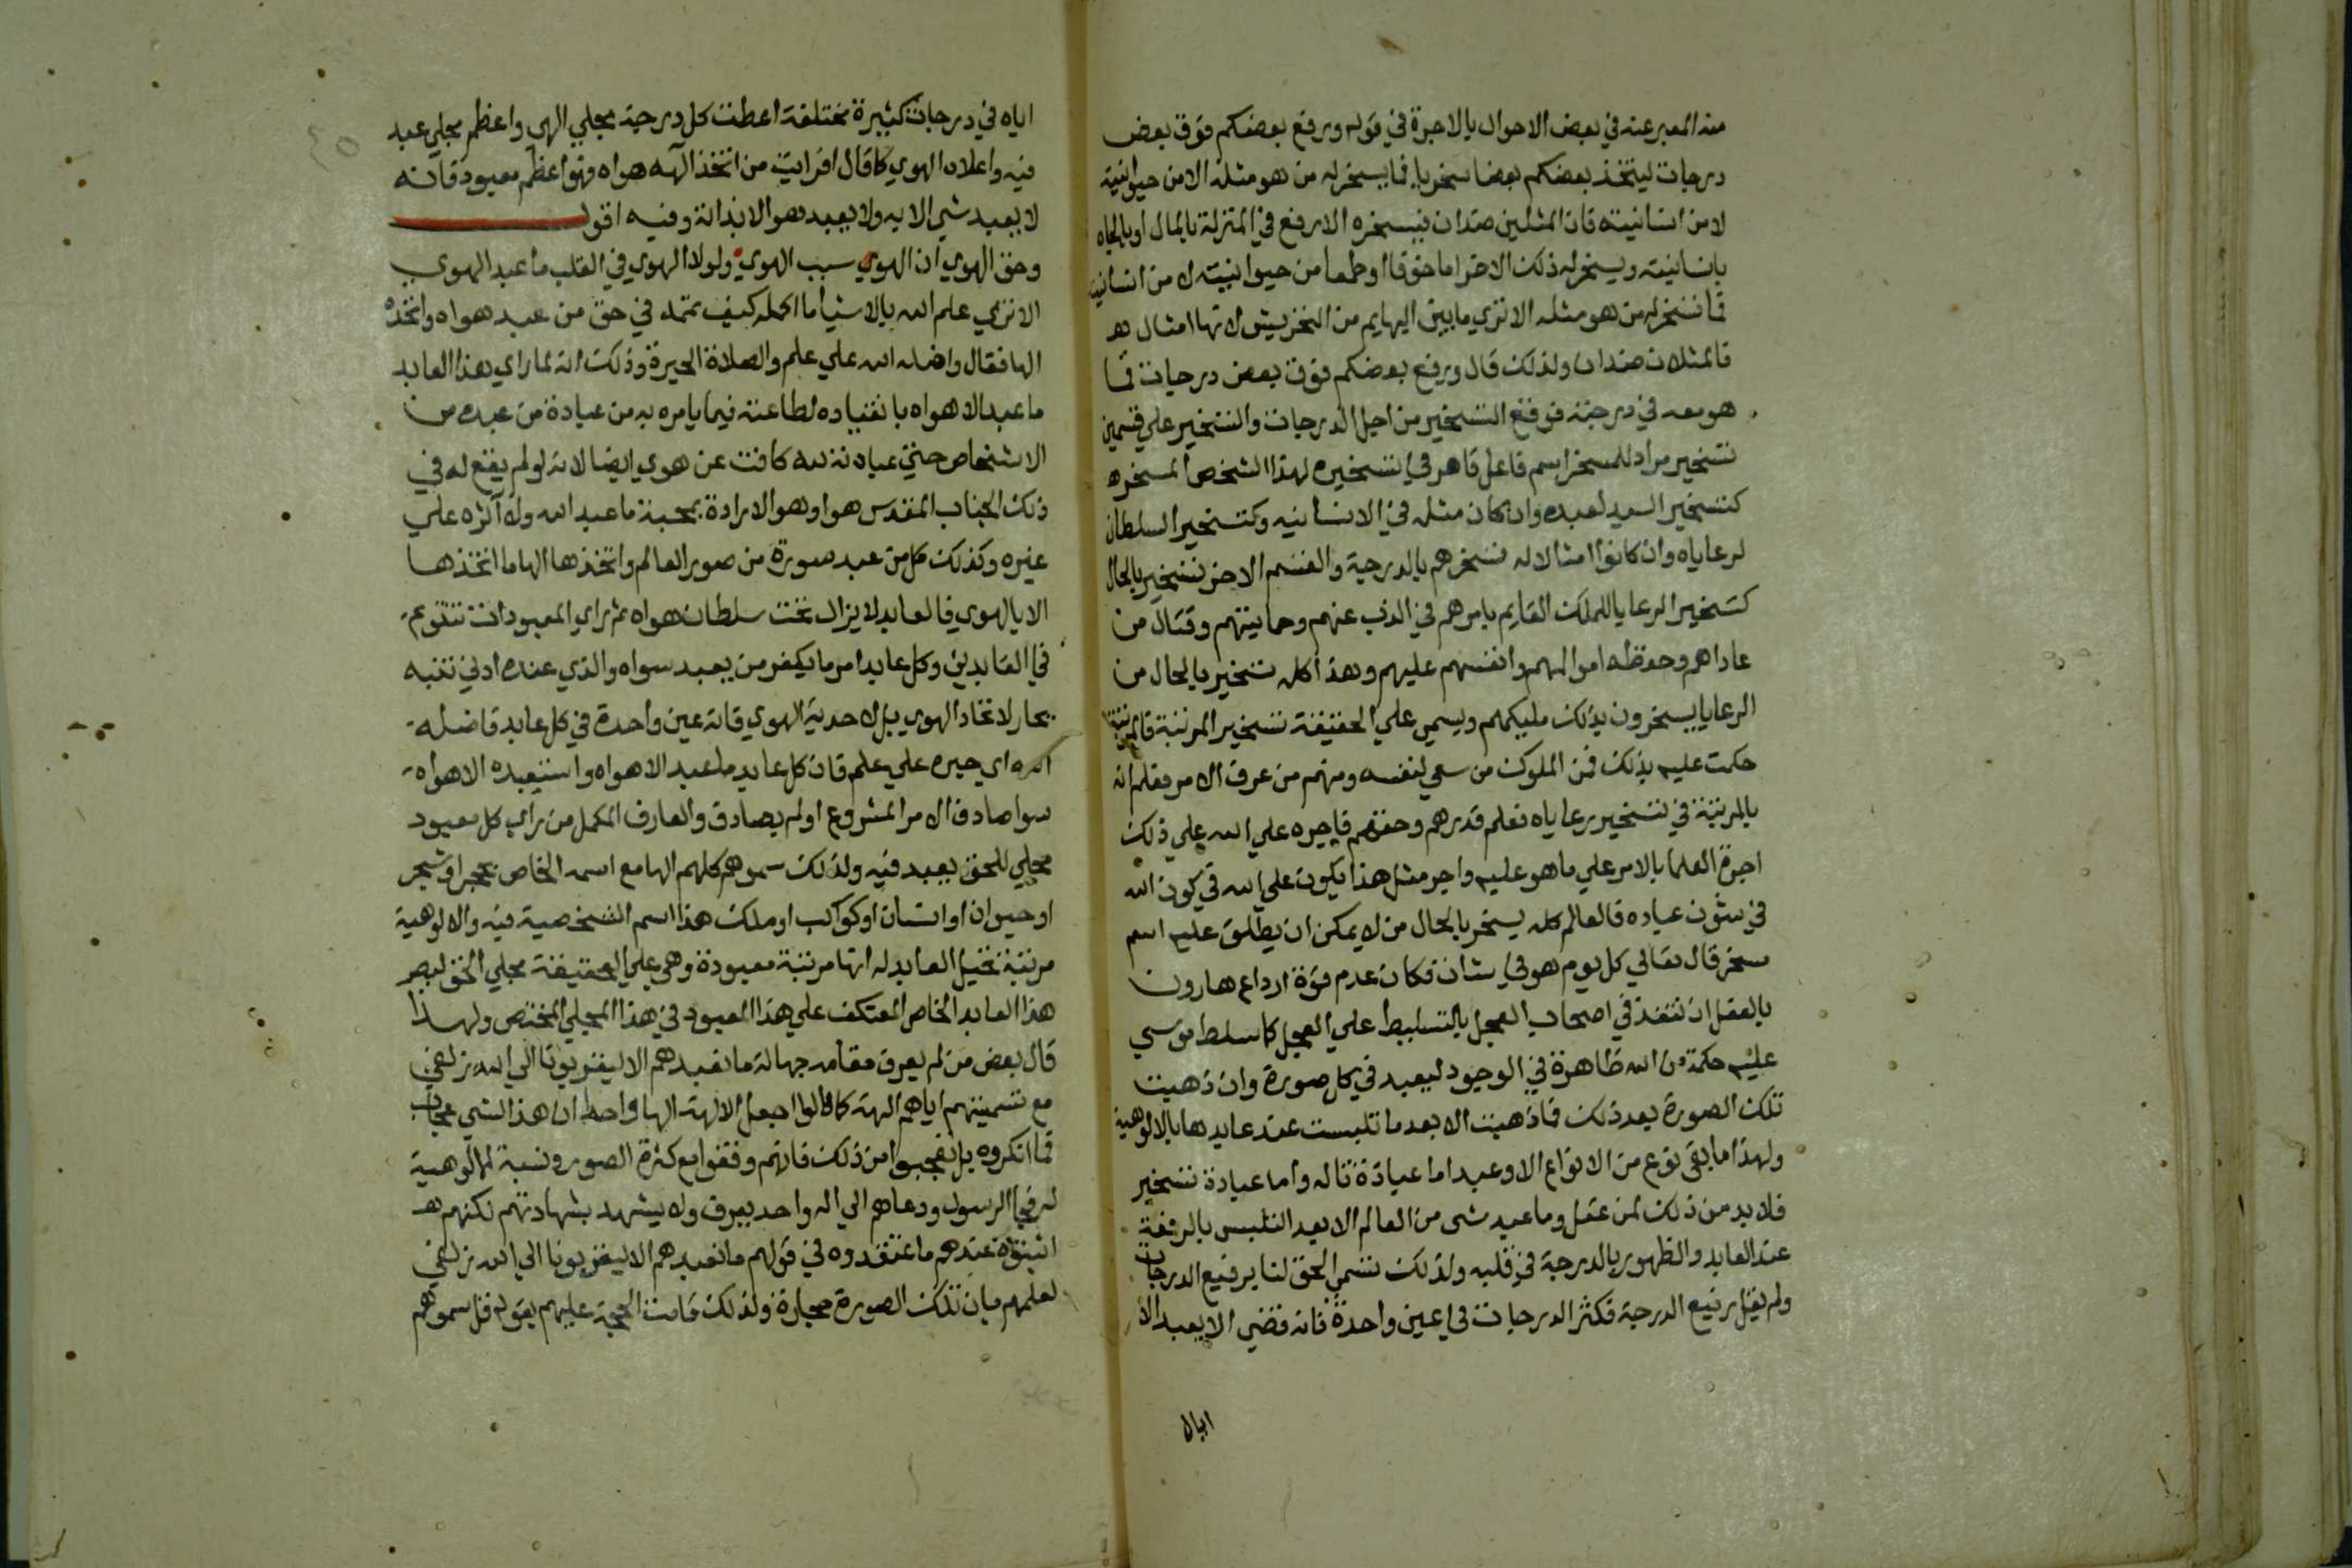 منه المعبر عنه في بعض الاحوال بالاجرة في قوله ورفع بعضكم فوق بعض
درجات ليتخذ بعضكم بعضا سخريا فما يسخر له من هو مثله الا من حيوانيته
لا من انسانيته فان المثلين ضدان فيسخره الارفع في المنزلة بالمال او بالجاه
بانسانيته ويسخر له ذلك الاخر اما خوفا او طمعا من حيوانيته لا من انسانيته
فما تسخر له من هو مثله الا تري ما بين البهايم من التحريش لانها امثال
فالمثلان ضدان ولذلك قال ورفع بعضكم فوق بعض درجات فما
هو معه في درجته فوقع التسخير من اجل الدرجات والتسخير علي قسمين
تسخير مراد للمسخر اسم فاعل قاهر في تسخيره لهذا الشخص المسخره
كتسخير السيد لعبده وان كان مثله في الانسانيه وكتسخير السلطان
لرعاياه وان كانوا امثالا له فسخرهم بالدرجة والقسم الاخر تسخير بالحال
كتسخير الرعايا للملك القايم بامرهم في الذب عنهم وحمايتهم وقتال من
عاداهم وحفظه اموالهم وانفسهم عليهم وهذا كله تسخير بالحال من
الرعايا يسخرون بذلك مليكهم ويسمي علي الحقيقة تسخير المرتبة فالمرتبة
حكمت عليه بذلك فمن الملوك من سعي لنفسه ومنهم من عرف الامر فعلم انه
بالمرتبة في تسخير رعاياه فعلم قدرهم وحقهم فاجره علي الله علي ذلك
اجرة العلما بالامر علي ما هو عليه واجر مثل هذا يكون علي الله في كون الله
في شؤن عباده فالعالم كله يسخر بالحال من لا يمكن ان يطلق عليه اسم
مسخر قال تعالي كل يوم هو في شان فكان عدم قوة ارداع هارون
بالفعل ان تنفذ في اصحاب العجل بالتسليط علي العجل كما سلط موسي
عليه حكمة من الله ظاهرة في الوجود ليعبد في كل صورة وان ذهبت
تلك الصورة بعد ذلك فما ذهبت الا بعد ما تلبست عند عابدها بالالوهية
ولهذا ما بقي نوع من الانواع الا وعبد اما عبادة تاله واما عبادة تسخير
فلا بد من ذلك لمن عقل وما عبد شي من العالم الا بعد التلبس بالرفعة
عند العابد والظهور بالدرجة في قلبه ولذلك تسمي الحق لنا برفيع الدرجات
ولم يقل رفيع الدرجة فكثر الدرجات في عين واحدة فانه قضي الا يعبد الا
اياه
اياه في درجات كثيرة مختلفة اعطت كل درجة مجلي الهي واعظم مجلي عبد
فيه واعلاه الهوي كما قال افرايت من اتخذ الهه هواه فهو اعظم معبود فانه
لا يعبد شي الا به ولا يعبد هو الا بذاته وفيه اقول
وحق الهوي ان الهوي سبب الهوي ولولا الهوي في القلب ما عبد الهوي
الا تري علم الله بالاشيا ما اكمله كيف تمم في حق من عبد هواه واتخذه
الها فقال واضله الله علي علم والضلالة الحيرة وذلك انه لما راي هذا العابد
ما عبد الا هواه بانقياده لطاعته فيما يامره به من عبادة من عبده من
الاشخاص حتي عبادته لله كانت عن هوي ايضا لانه لو لم يقع له في
ذلك الجناب المقدس هوا وهو الارادة بمحبة ما عبد الله ولا آثره علي
غيره وكذلك كل من عبد صورة من صور العالم واتخذها الها ما اتخذها
الا بالهوي فالعابد لا يزال تحت سلطان هواه ثم راي المعبودات تتنوع
في العابدين وكل عابد امر ما يكفر من يعبد سواه والذي عنده ادني تنبه
بحار لاتحاد الهوي بل لاحدية الهوي فانه عين واحدة في كل عابد فاضله
الله اي حيره علي علم فان كل عابد ما عبد الا هواه واستعبده الا هواه
سوا صادف الامر المشروع او لم يصادف والعارف المكمل من راي كل معبود
مجلي للحق يعبد فيه ولذلك سموهم كلهم الها مع اسمه الخاص بحجر او شجر
او حيوان او انسان او كوكب او ملك هذا اسم الشخصية فيه والالوهية
مرتبة تخيل العابد له انها مرتبة معبودة وهي علي الحقيقة مجلي الحق لبصر
هذا العابد الخاص المعتكف علي هذا المعبود في هذا المجلي المختص ولهذا
قال بعض من لم يعرف مقامه جهالة ما نعبدهم الا ليقربونا الي الله زلفي
مع تسميتهم اياهم الهة كما قالوا اجعل الالهة الها واحدا ان هذا لشي عجاب
فما انكروه بل تعجبوا من ذلك فانهم وقفوا مع كثرة الصور ونسبة الالوهية
لها في الرسول ودعاهم الي اله واحد يعرف ولا يشهد بشهادتهم لكنهم
اثبتوه عندهم ما عتقدوه في قولهم ما نعبدهم الا ليقربونا الي الله زلفي
لعلمهم بان تلك الصورة حجارة ولذلك قامت الحجة عليهم بقوله قل سموهم